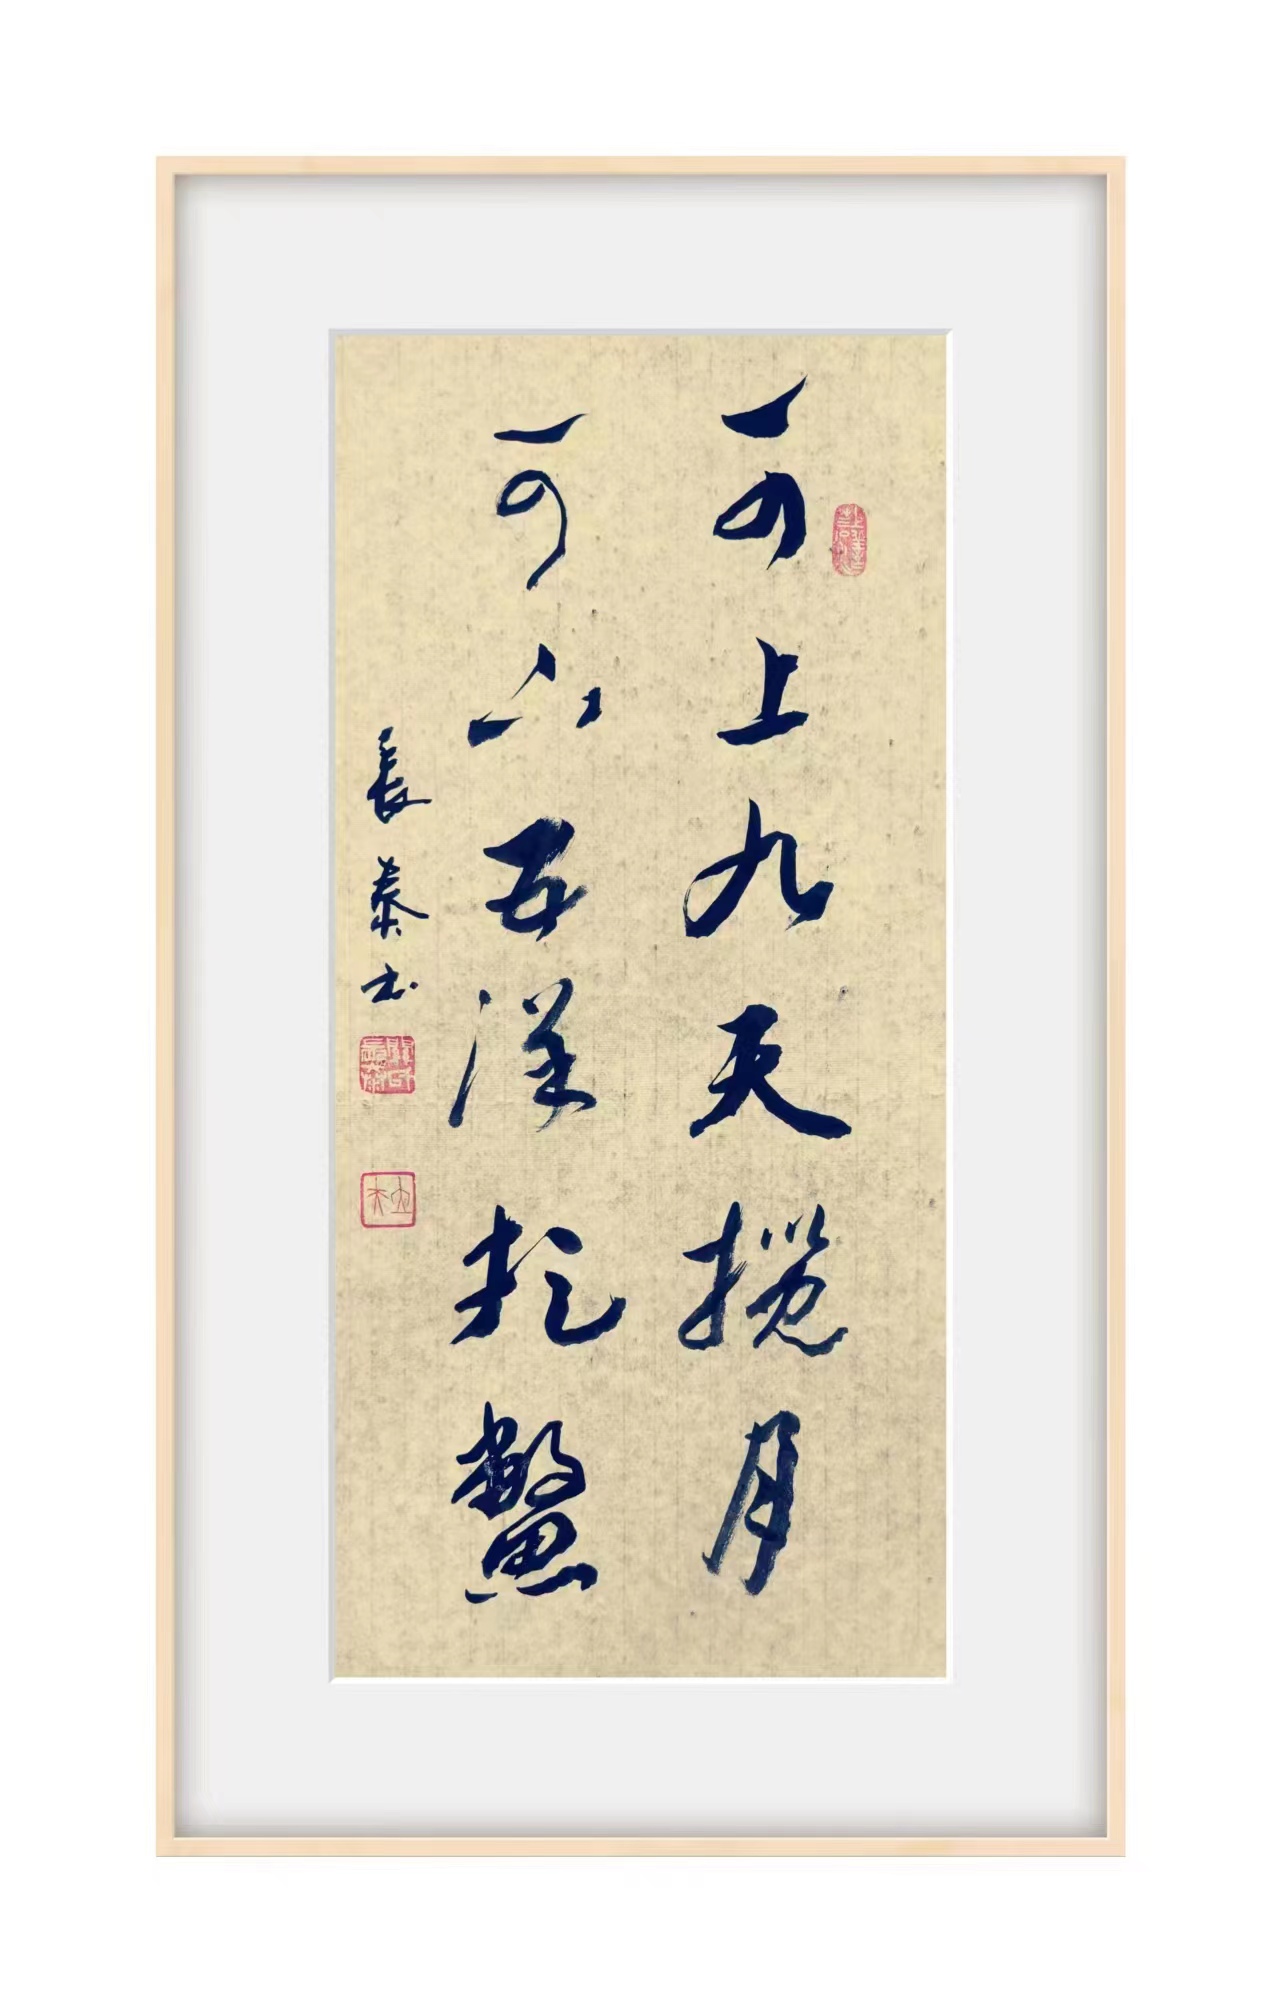 可上九天揽月
可下五洋捉鳖
長泰书